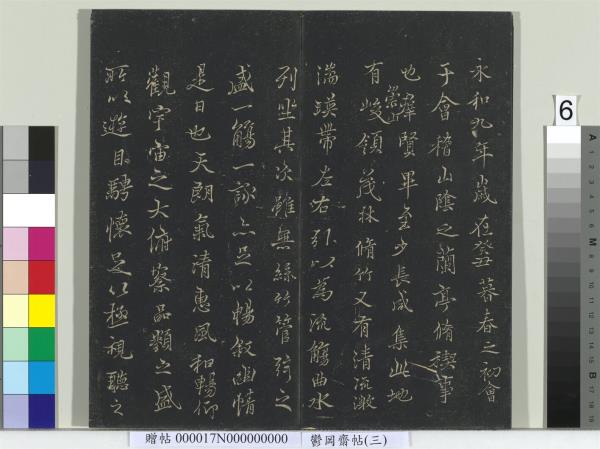 永和九年歲在癸丑暮春之初會
于會稽山陰之蘭亭脩稧事
也群賢畢至少長咸集此地
有崇山峻領茂林脩竹又有清流激
湍暎帶左右引以為流觴曲水
列坐其次雖無絲竹管弦之
盛一觴一詠亦足以暢敘幽情
是日也天朗氣清惠風和暢仰
觀宇宙之大俯察品類之盛
所以遊目騁懷足以極視聽之
6
A 1 2 3 4 5 6 M 8 9 10 11 12 13 14 15 B 17 18 19
贈帖 000017N000000000 鬱岡齋帖(三)